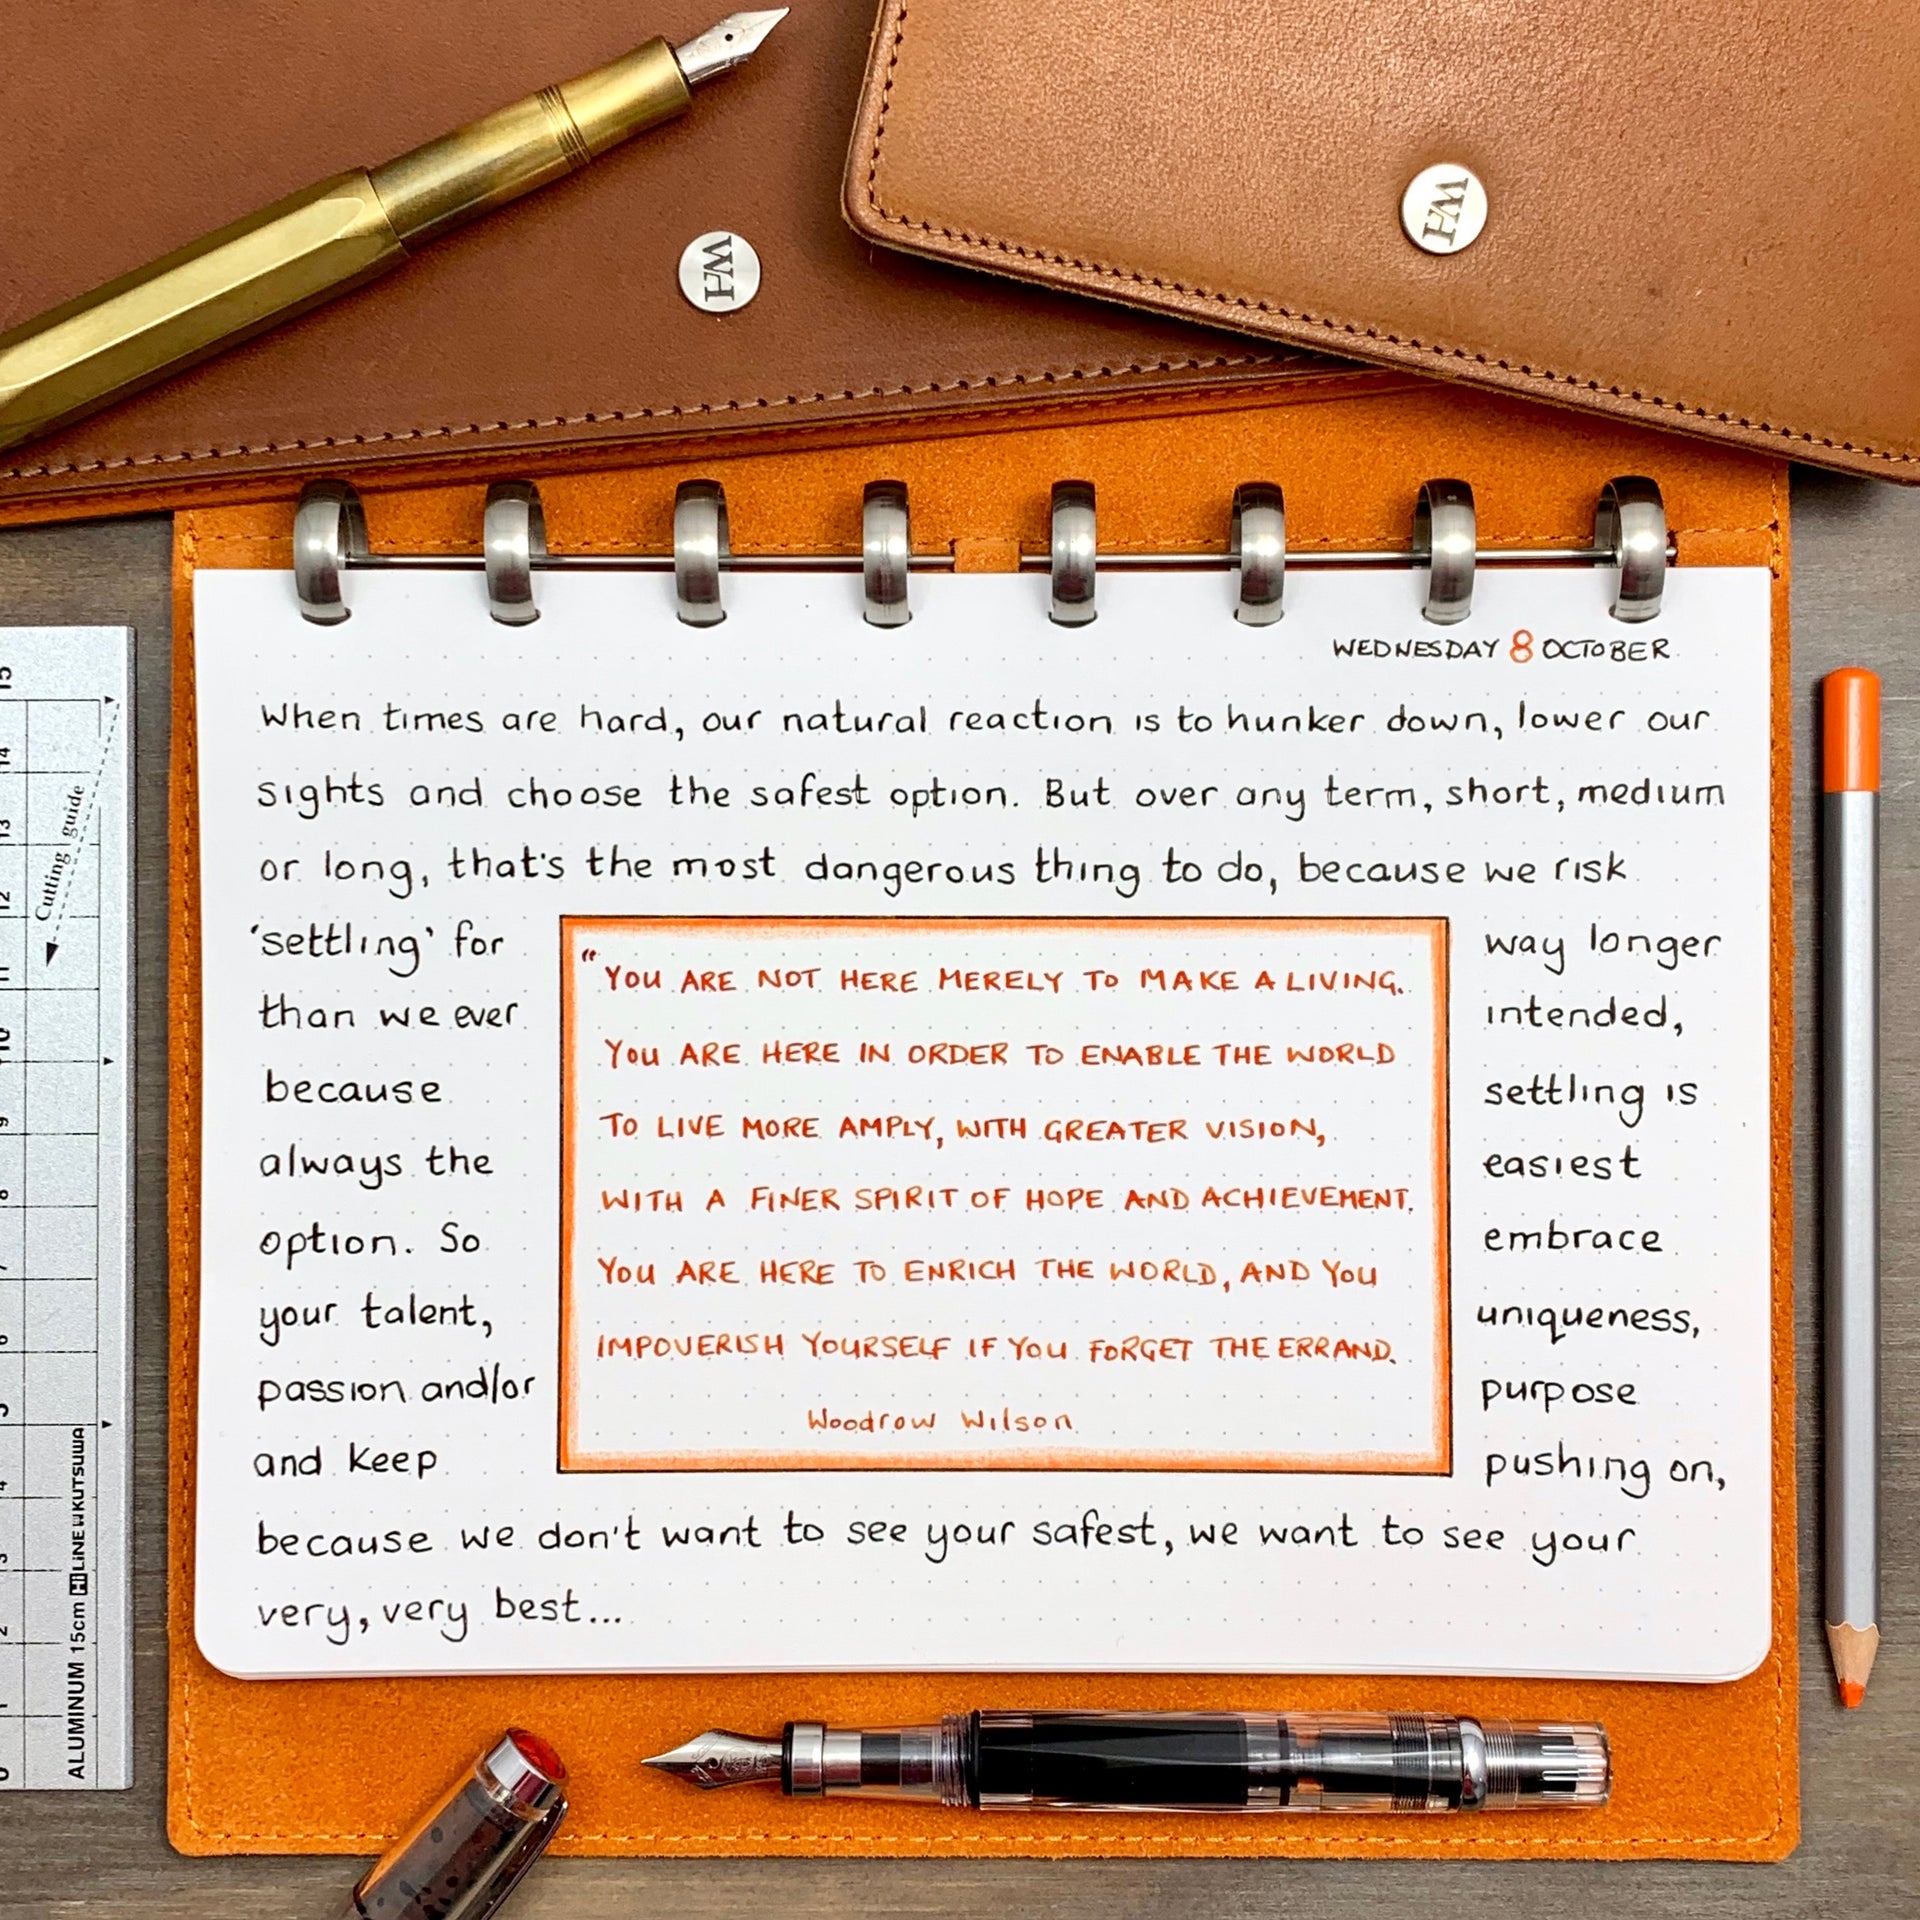 WEDNESDAY 8 OCTOBER
When times are hard, our natural reaction is to hunker down, lower our
sights and choose the safest option. But over any term, short, medium
or long, that's the most dangerous thing to do, because we risk
'settling' for way longer
than we ever intended,
because settling is
always the easiest
option. So embrace
your talent, uniqueness,
passion and/or purpose
and keep pushing on,
because we don't want to see your safest, we want to see your
very, very best...
"YOU ARE NOT HERE MERELY TO MAKE A LIVING.
YOU ARE HERE IN ORDER TO ENABLE THE WORLD
TO LIVE MORE AMPLY, WITH GREATER VISION,
WITH A FINER SPIRIT OF HOPE AND ACHIEVEMENT.
YOU ARE HERE TO ENRICH THE WORLD, AND YOU
IMPOVERISH YOURSELF IF YOU FORGET THE ERRAND.
Woodrow Wilson
WH
WH
Cutting guide
ALUMINUM 15cm HiLiNE KUTSUWA
0 1 2 3 4 5 6 7 8 9 10 11 12 13 14 15